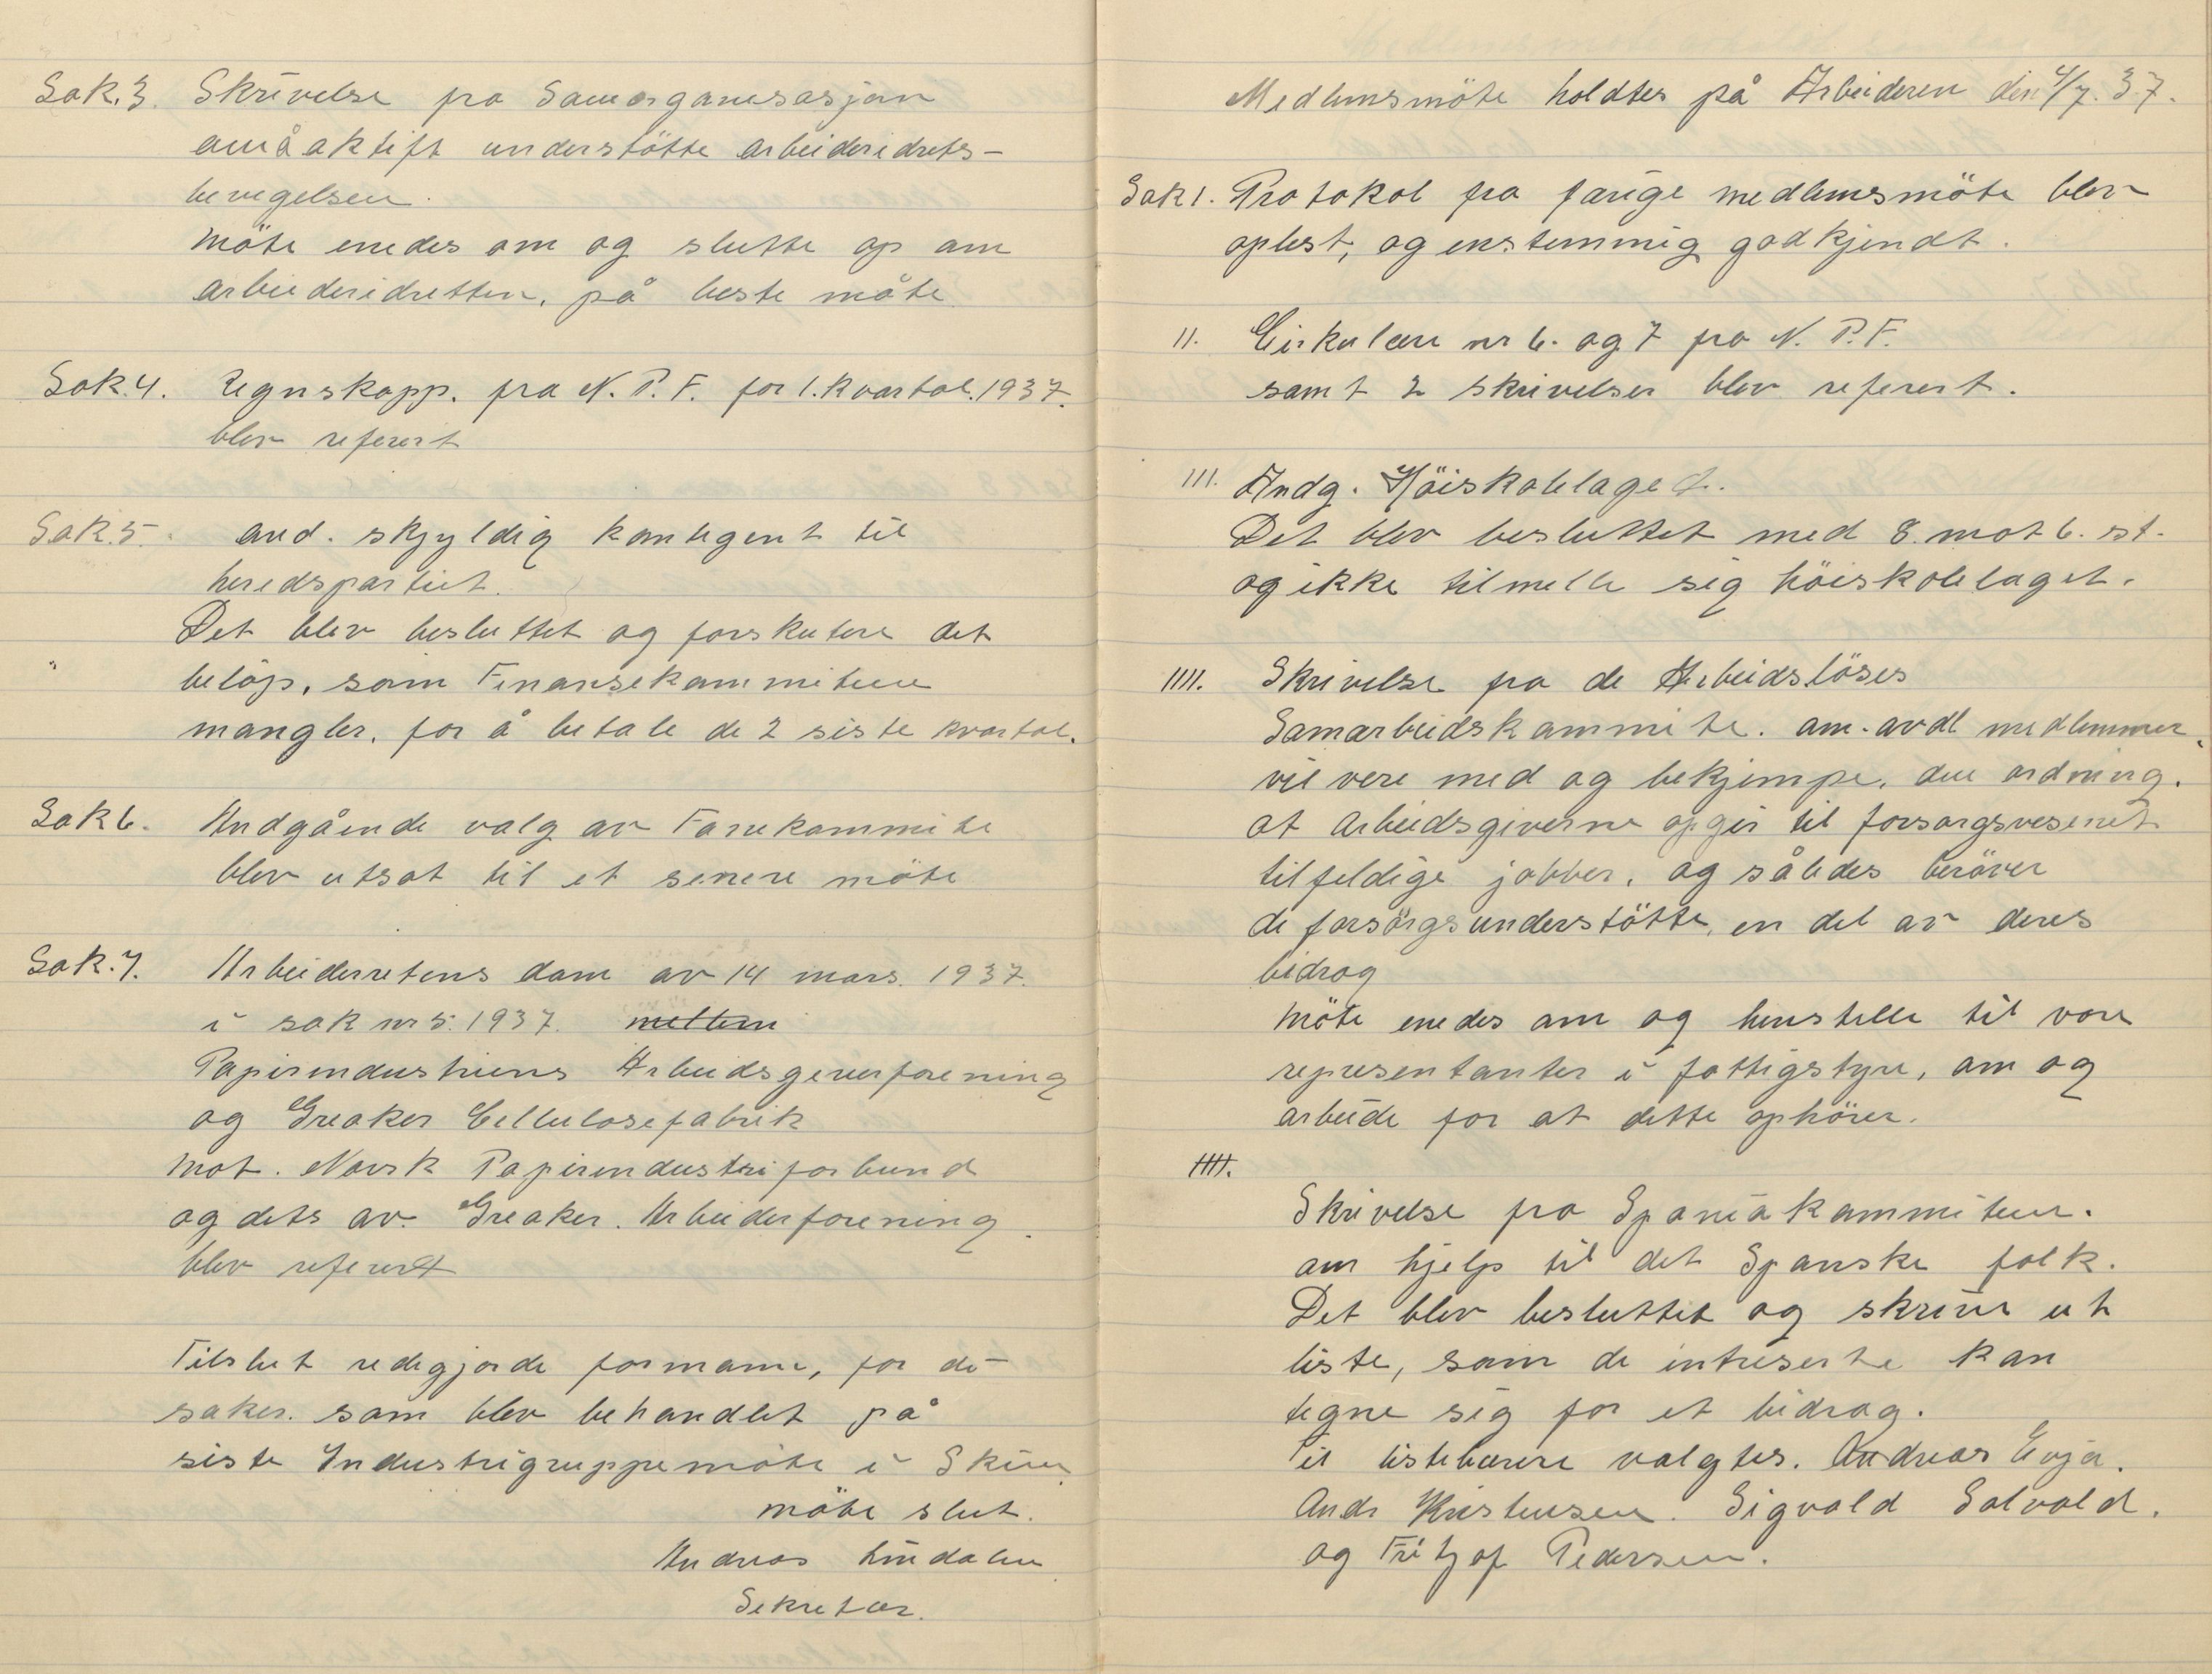 Sak.3. Skrivelse fra Samorganisasjon
om å aktift understötte arbeideridrets-
bevegelsen.
Möte enedes om og slutte op om
arbeideridretten, på beste måte
Sak.4. Regnskapp. fra N. P. F. for 1. kvartal. 1937.
blev referert
Sak.5. and. skjyldig kontigent til
heredspartiet.
Det blev besluttet og forskutere det
belöp, som Finansekommiteen
mangler, for å betale de 2 siste kvartal.
Sak 6. Andgående valg av Fanekommite
blev utsat til et senere möte
Sak.7. Arbeiderretens dom av 14 mars. 1937.
i sak nr 5. 1937. mellem
Papirindustriens Arbeidsgiverforening
og Greaker Cellulosefabrik
Mot. Norsk Papirindustriforbund
og dets av. Greaker. Arbeiderforening.
blev referert
Tilslut redegjorde formann, for de
saker. som blev behandlet på
siste Industrigruppemöte i Skien
möte slut.
Andreas Lindalen
Sekretær.
Medlemsmöte holdtes på Arbeideren den 4/7. 37.
Sak 1. Protokol fra forige medlemsmöte blev
oplest, og enstemmig godkjendt.
11. Cirkulære nr 6. og 7 fra N. P. F.
samt 2 skrivelser blev referert.
111. Andg. Höiskolelaget.
Det blev besluttet med 8. mot 6. st.
og ikke tilmelle sig höiskolelaget.
1111. Skrivelse fra de Arbeidslöses
Samarbeidskommite. om avdl medlemmer
vil vere med og bekjempe. den ordning.
at Arbeidsgiverne opgir til forsorgsvesenet
tilfeldige jobber, og således beröver
de forsörgsunderstötte, en del av deres
bidrag
Möte enedes om og henstelle til vore
representanter i fattigstyre, om og
arbeide for at dette ophörer.
1111.
Skrivelse fra Spaniakommiteen.
om hjelp til det Spanske folk.
Det blev besluttet og skrive ut
liste, som de intreserte kan
tegne sig for et bidrag.
Til listebærere valgtes. Andreas Evja.
Andr Kristensen. Sigvald Solvold.
og Fritjof Pedersen.